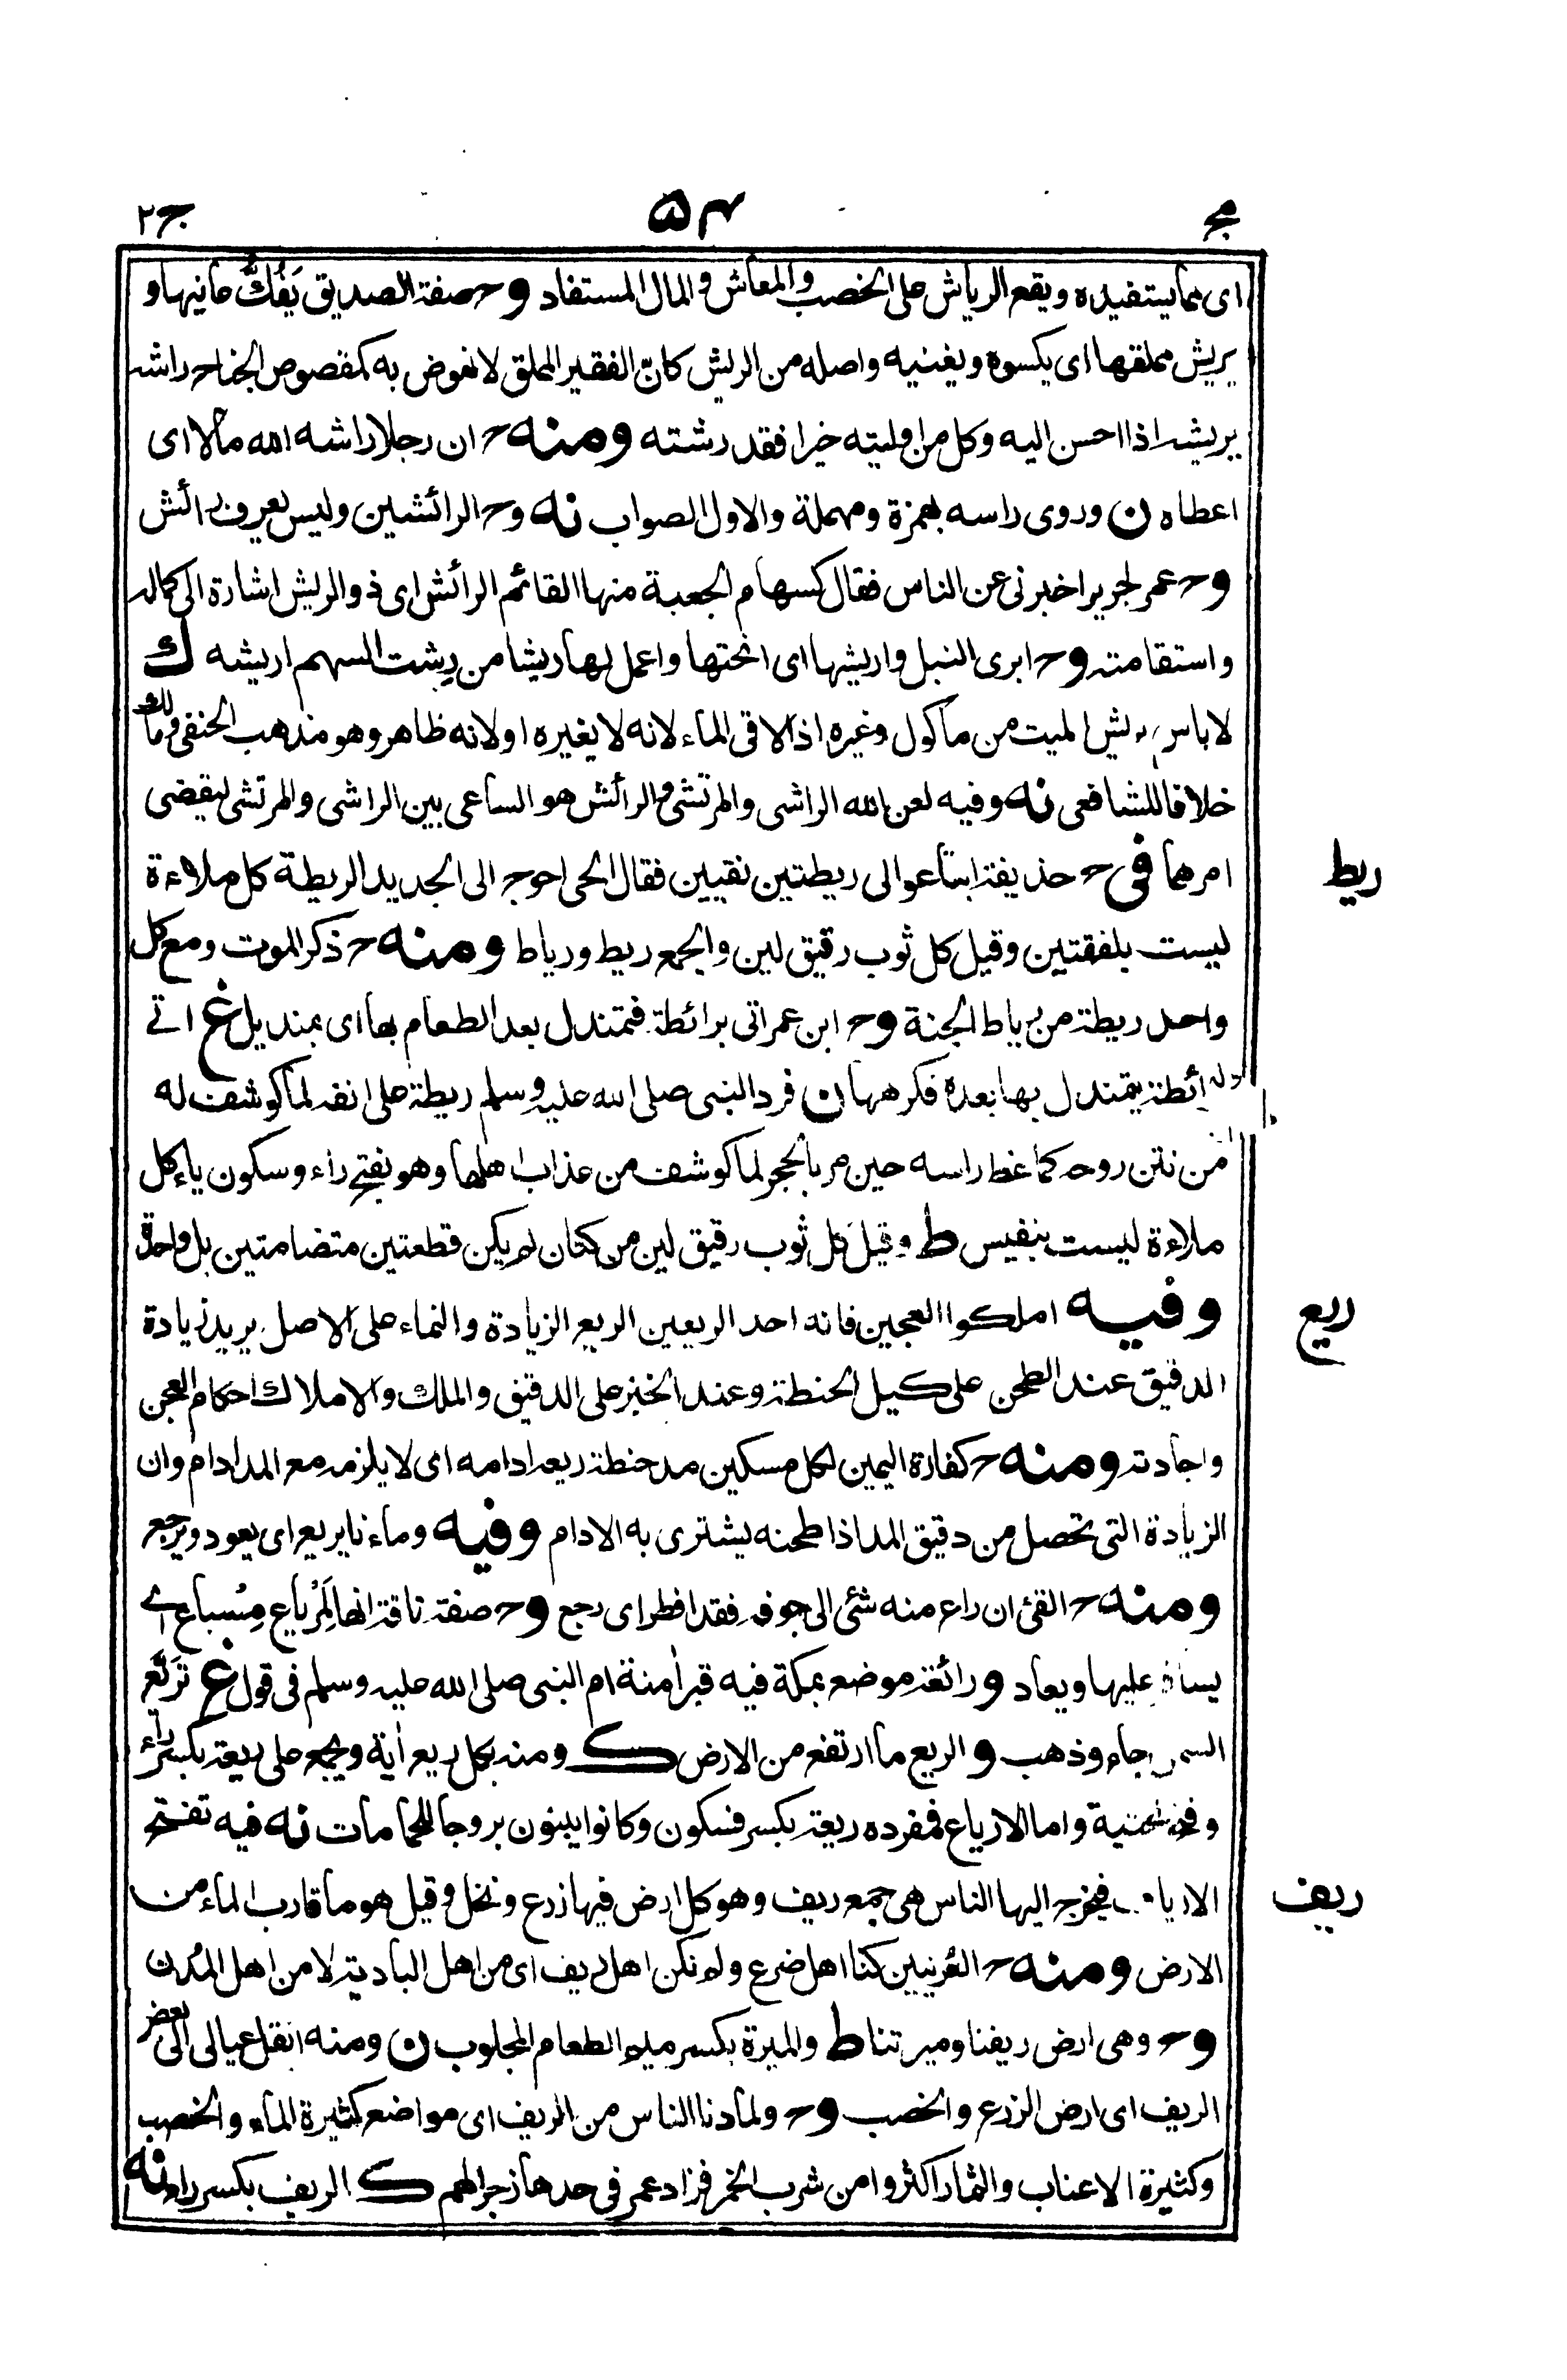 مج
٥٤
ج٢
اى مما يستفيده ويقع الرياش على الخصب والمعاش و المال المستفاد وح صفة الصديق يَفُكُّ عانيها و
يريش مملقها اى يكسوه ويغنيه واصله من الريش كانّ الفقير المملق لا نهوض به كمقصوص الجناح راشه
يريشه اذا احسن اليه وكل من اوليته خيرا فقد رشته ومنه ح ان رجلا راشه الله مالا اى
اعطاه ن وروى راسه بهمزة ومهملة والاول الصواب نه وح الرائشين وليس يعرف رائش
وح عمر لجرير اخبرنى عن الناس فقال كسهام الجعبة منها القائم الرائش اى ذو الريش اشارة الى كماله
واستقامته وح ابرى النبل واريشها اى انحتها واعمل لها ريشا من رِشت السهم اريشه ك
لا باس بريش الميت من ماكول وغيره اذا لاقى الماء لانه لا يغيره او لانه طاهر وهو مذهب الحنفى ومالك
خلافا للشافعى نه وفيه لعن الله الراشى والمرتشى والرائش هو الساعى بين الراشى والمرتشى ليقضى
امرهما فى ح حذيفة ابتاعوا لى ريطتين نقيين فقال الحى احوج الى الجديد الريطة كل ملاءة
ريط
ليست بلفقتين وقيل كل ثوب رقيق لين والجمع ريط ورياط ومنه ح ذكر الموت ومع كل
واحد ريطة من رياط الجنة وح ابن عمر اتى برائطة فتمندل بعد الطعام بها اى بمنديل غ اتى
رائطة يتمندل بها بعده فكرهها ن فرد النبى صلى الله عليه وسلم ريطة على انفه لما كوشف له
من نتن روحه كما غط راسه حين مر بالحجر لما كوشف من عذاب اهلها وهو بفتح راء وسكون ياء كل
ملاءة ليست بنفيس ط وقيل كل ثوب رقيق لين من كتان لم يكن قطعتين متضامتين بل واحدة
وفيه املكوا العجين فانه احد الريعين الريع الزيادة والنماء على الاصل يريد زيادة
ريع
الدقيق عند الطحن على كيل الحنطة وعند الخبز على الدقيق والملك والاملاك احكام العجن
واجادته ومنه ح كفارة اليمين لكل مسكين مد حنطة ريعه ادامه اى لا يلزمه مع المد ادام وان
الزيادة التى تحصل من دقيق المد اذا طحنه يشترى به الادام وفيه وماءنا يريع اى يعود ويرجع
ومنه ح القئ ان راع منه شئى الى جوفه فقد افطر اى رجع وح صفة ناقة انها لَمِرْياع مِسْياع اى
يسافر عليها ويعاد و رائعة موضع بمكة فيه قبر اٰمنة ام النبى صلى الله عليه وسلم فى قول غ تَرَيَّع
السمن جاء وذهب و الريع ما ارتفع من الارض ك ومنه بكل ريع اٰية ويجمع على ريعة بكسر راء
وفتح تحتية واما الارياع فمفرده ريعة بكسر فسكون وكانوا يبنون بروجا للحمامات نه فيه تفتح
الارياف فيخرج اليها الناس هى جمع ريف وهو كل ارض فيها زرع ونخل وقيل هو ما قارب الماء من
ريف
الارض ومنه ح العُرنيين كنا اهل ضرع ولم نكن اهل ريف اى من اهل البادية لا من اهل المُدن
وح وهى ارض ريفنا وميرتنا ط والميرة بكسر ميم الطعام المجلوب ن ومنه انقل عيالى الى بعض
الريف اى ارض الزرع والخصب وح ولما دنا الناس من الريف اى مواضع كثيرة الماء والخصب
وكثيرة الاعناب والثمار اكثروا من شرب الخمر فزاد عمر فى حدها زجرا لهم ك الريف بكسر راء نه